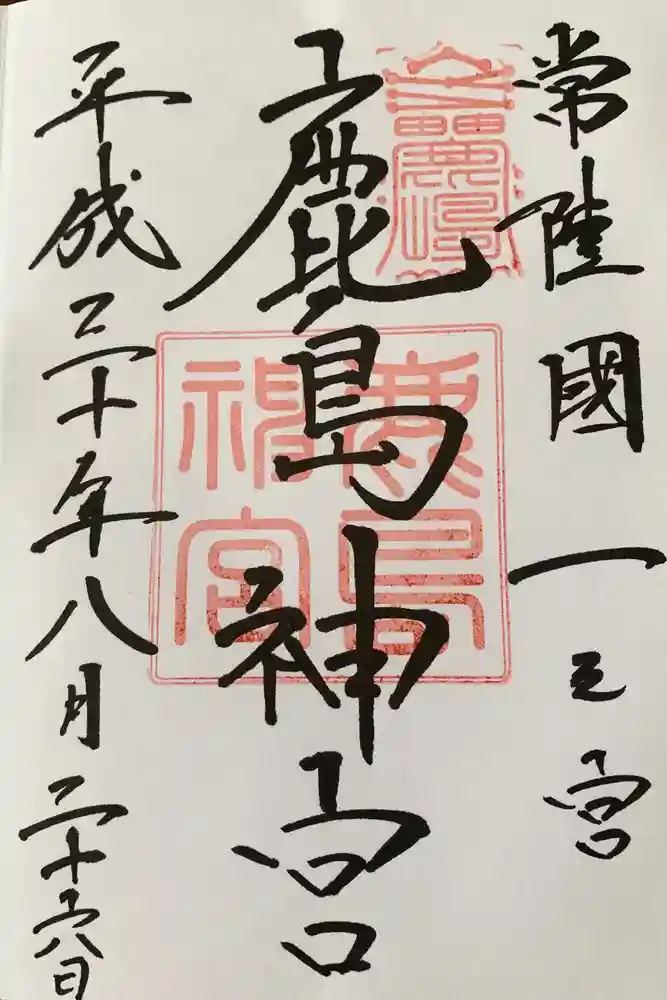 常陸國一之宮
鹿島神宮
平成三十年八月二十六日
鹿島神宮